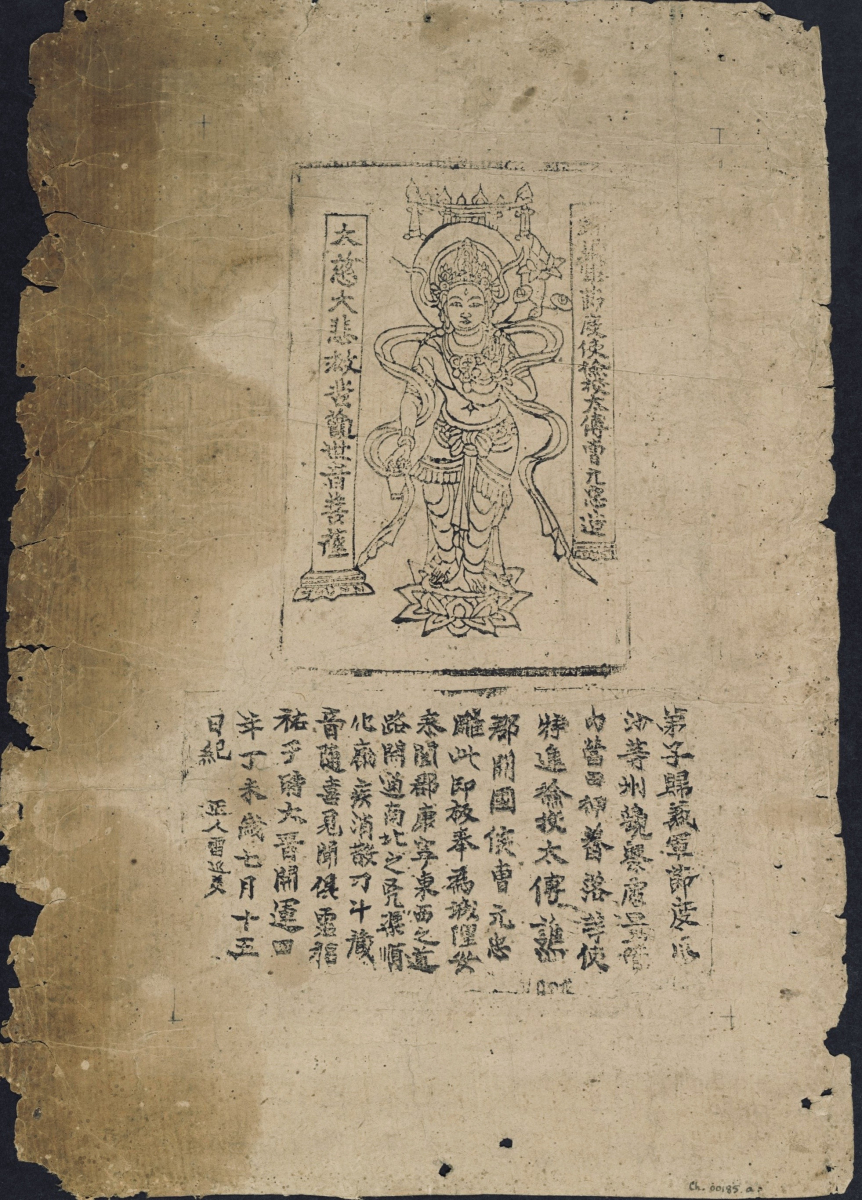 歸義軍節度使檢校太傅曹元忠造
大慈大悲救苦觀世音菩薩
弟子歸義軍節度瓜
沙等州觀察處置管
內營田押蕃落等使
特進檢校太傅譙
郡開國侯曹元忠
雕此印板奉為城隍安
泰闔郡康寧東西之道
路開通南北之兇渠順
化癘疾消散刁斗藏
音隨喜見聞俱霑福
祐于時大晉開運四
年丁未歲七月十五
日紀 匠人雷延美
Ch. 00185. a.